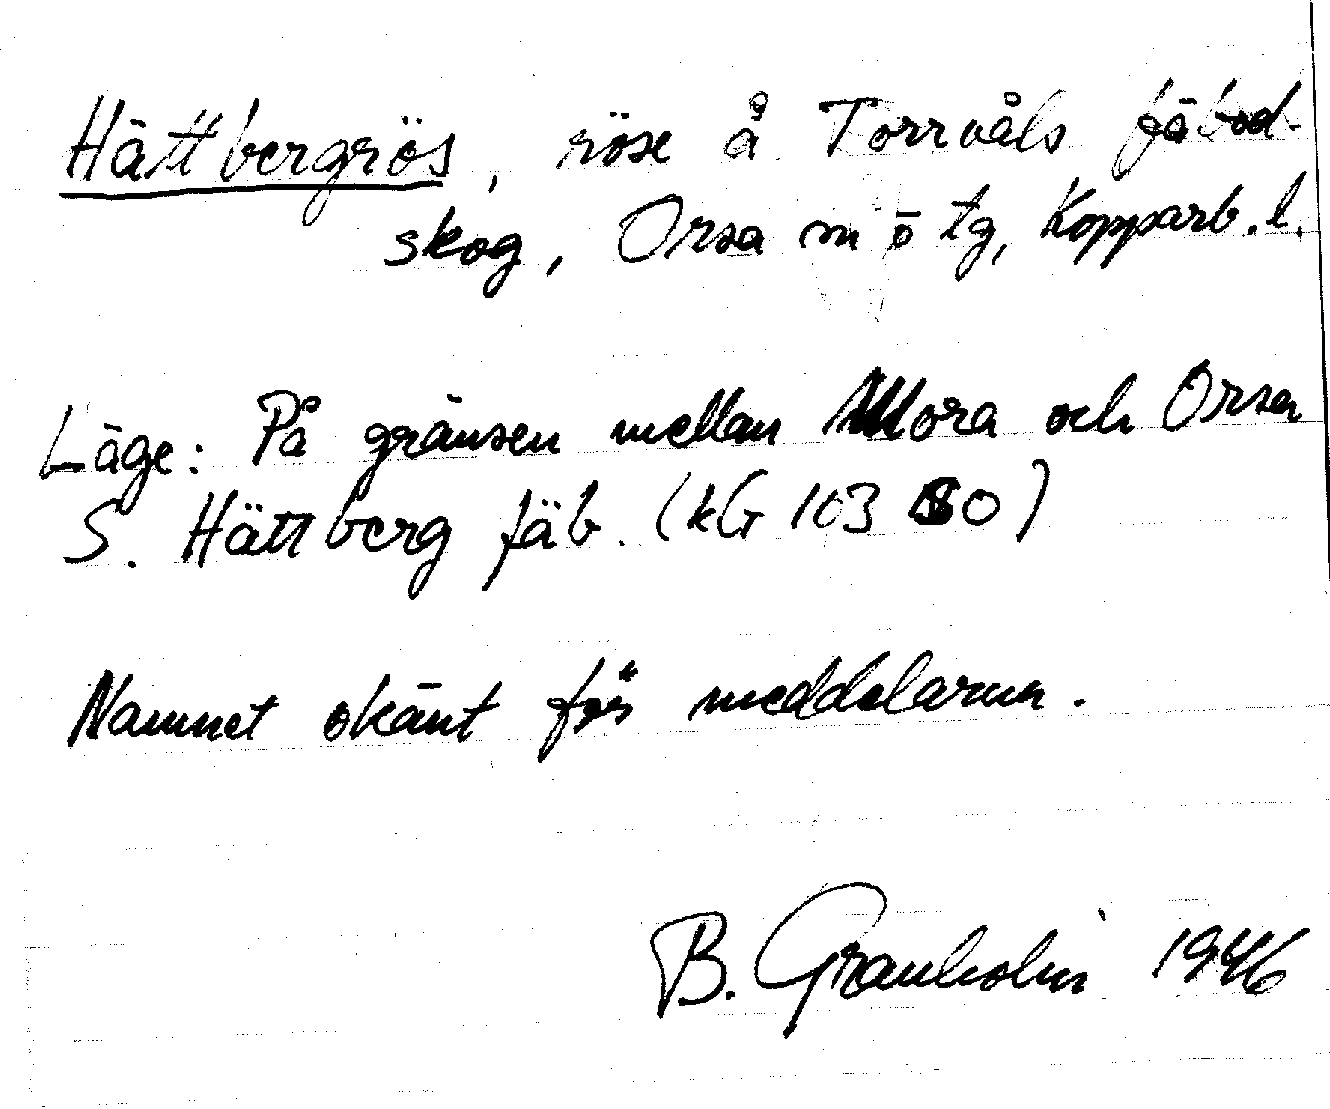 Hättbergrös, röse å Torrvåls fäbod-
skog, Orsa m o tg, Kopparb. l.
Läge: På gränsen mellan Mora och Orsa
S. Hättberg fäb. (kG 103 80)
Namnet okänt för meddelarna.
B. Granholm 1946